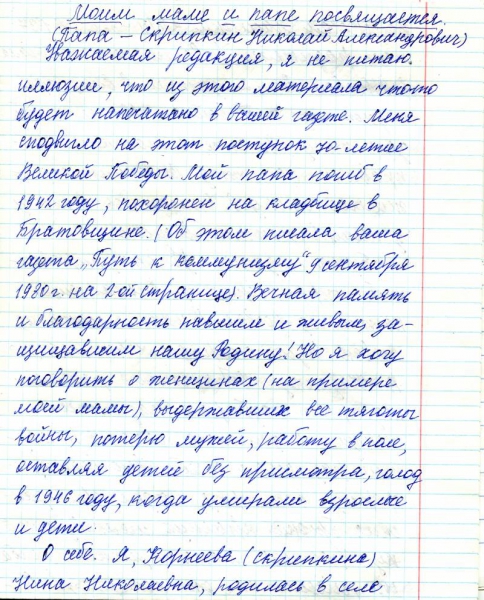 Моим маме и папе посвящается.
(Папа – Скрипкин Николай Александрович)
Уважаемая редакция, я не питаю
иллюзии, что из этого материала что-то
будет напечатано в вашей газете. Меня
сподвигло на этот поступок 70-летие
Великой Победы. Мой папа погиб в
1942 году, похоронен на кладбище в
Братовщине. (Об этом писала ваша
газета „Путь к коммунизму" 9 октября
1980 г. на 2-ой странице). Вечная память
и благодарность павшим и живым, за-
щищавшим нашу Родину! Но я хочу
поговорить о женщинах (на примере
моей мамы), выдержавших все тяготы
войны, потерю мужей, работу в поле,
оставляя детей без присмотра, голод
в 1946 году, когда умирали взрослые
и дети.
О себе. Я, Корнеева (Скрипкина)
Нина Николаевна, родилась в селе